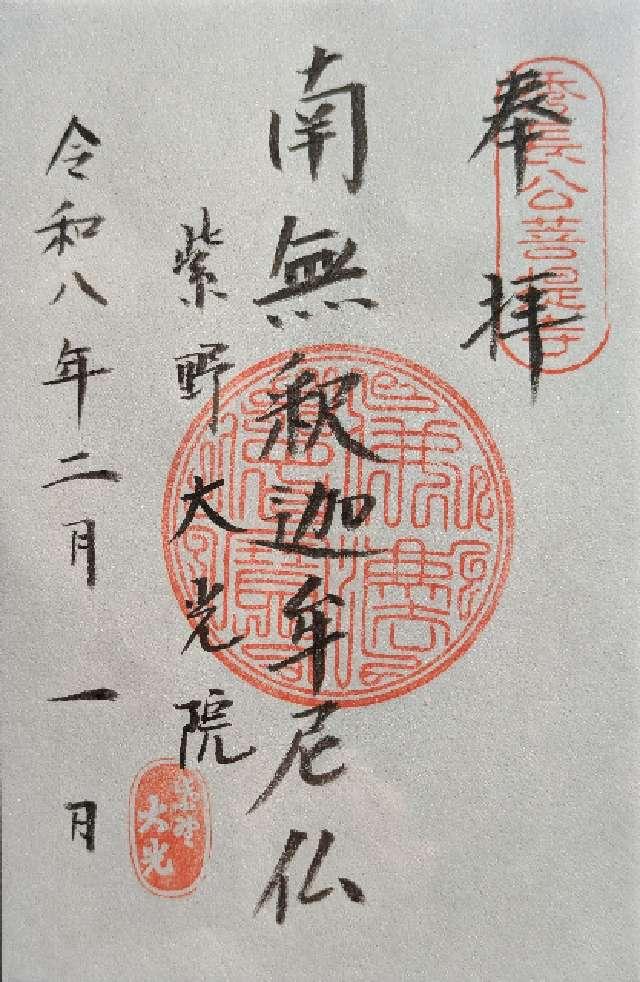 秀長公菩提寺
奉拝
南無釈迦牟尼仏
紫野大光院
紫野
大光
令和八年二月一日